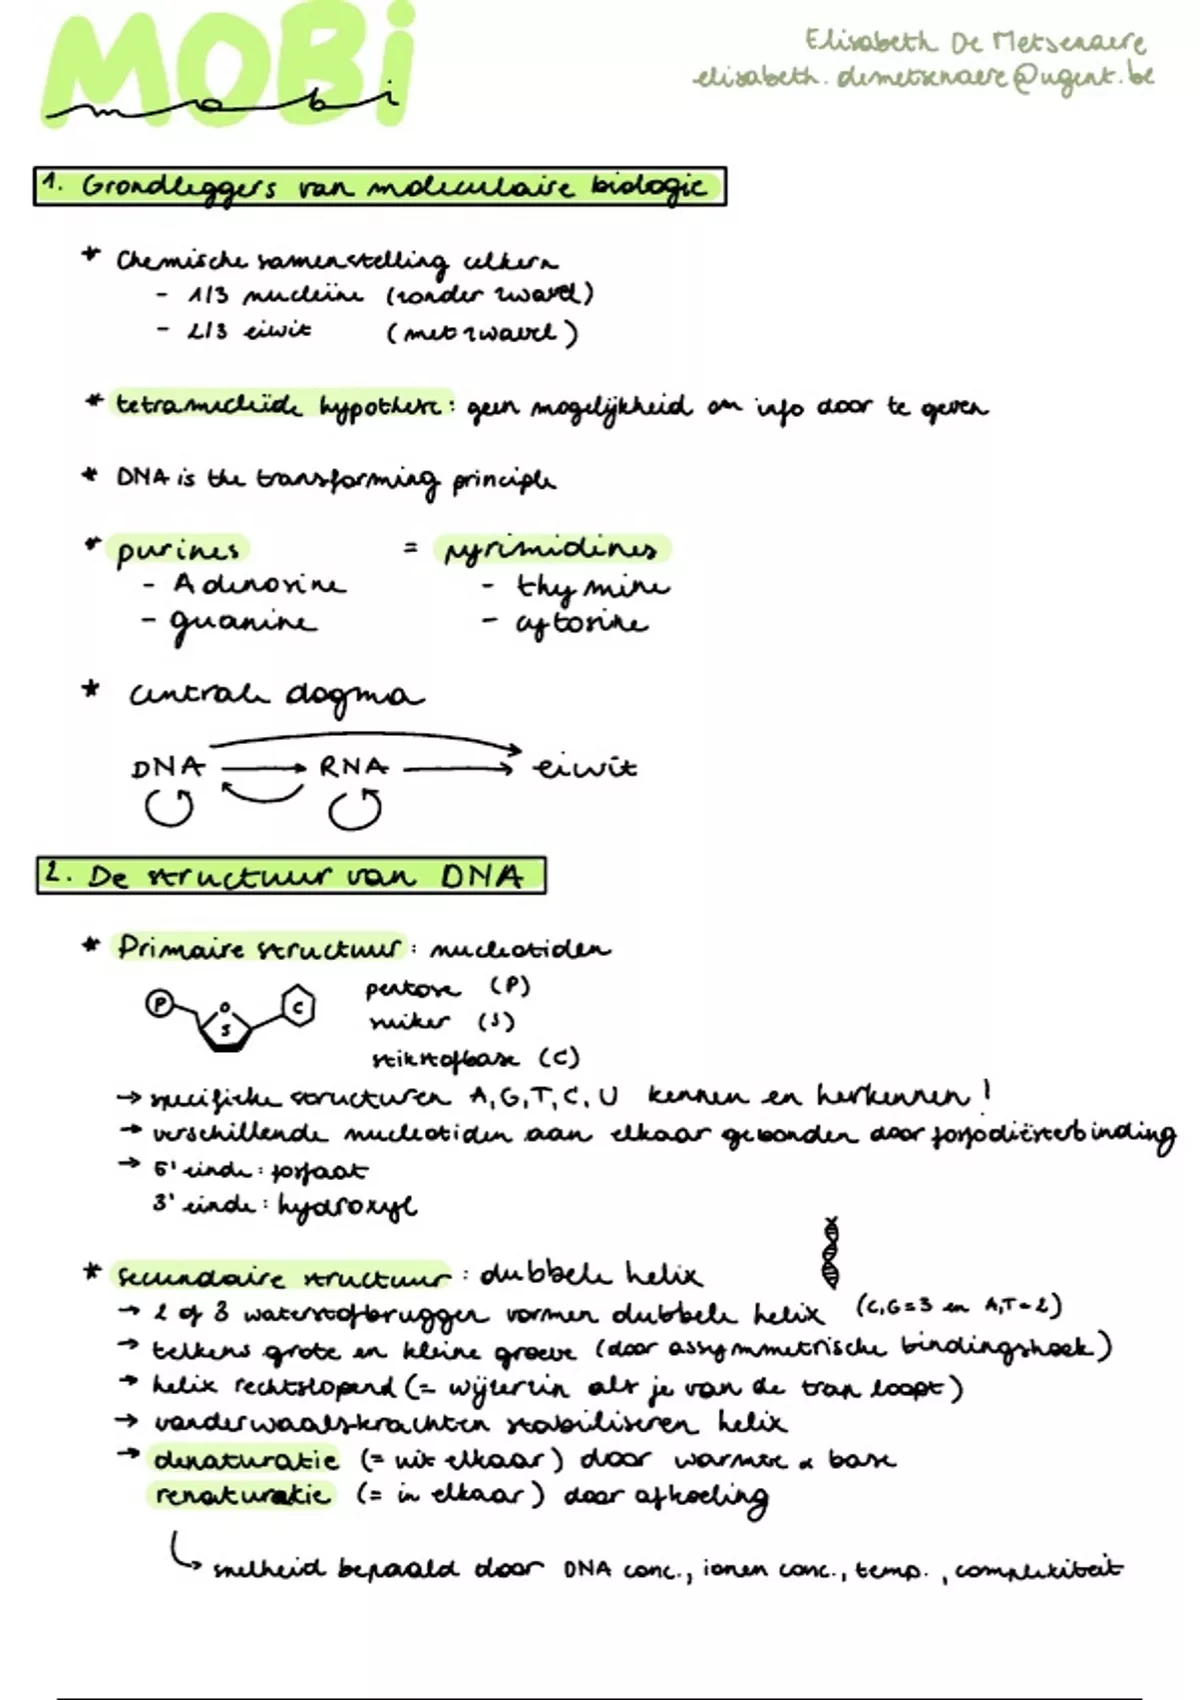 MOBi
mobi
Elisabeth De Metsenaere
elisabeth.demetsenaere@ugent.be
1. Grondleggers van moleculaire biologie
* Chemische samenstelling celkern
- 1/3 nucleïne (zonder zwavel)
- 2/3 eiwit (met zwavel)
* tetranucleïde hypothese: geen mogelijkheid om info door te geven
* DNA is the transforming principle
* purines = pyrimidines
- Adenosine - thymine
- guanine - cytosine
* centrale dogma
DNA → RNA → eiwit
2. De structuur van DNA
* Primaire structuur: nucleotiden
P O S C
pentose (P)
suiker (S)
stikstofbase (C)
→ specifieke structuren A, G, T, C, U kennen en herkennen!
→ verschillende nucleotiden aan elkaar gebonden door fosfodiësterbinding
→ 5' einde: fosfaat
3' einde: hydroxyl
* secundaire structuur: dubbele helix
→ 2 of 3 waterstofbruggen vormen dubbele helix (C,G=3 en A,T=2)
→ telkens grote en kleine groeve (door assymmetrische bindingshoek)
→ helix rechtslopend (= wijzerzin als je van de trap loopt)
→ vanderwaalskrachten stabiliseren helix
→ denaturatie (= uit elkaar) door warmte & base
renaturatie (= in elkaar) door afkoeling
↳ snelheid bepaald door DNA conc., ionen conc., temp., complexiteit